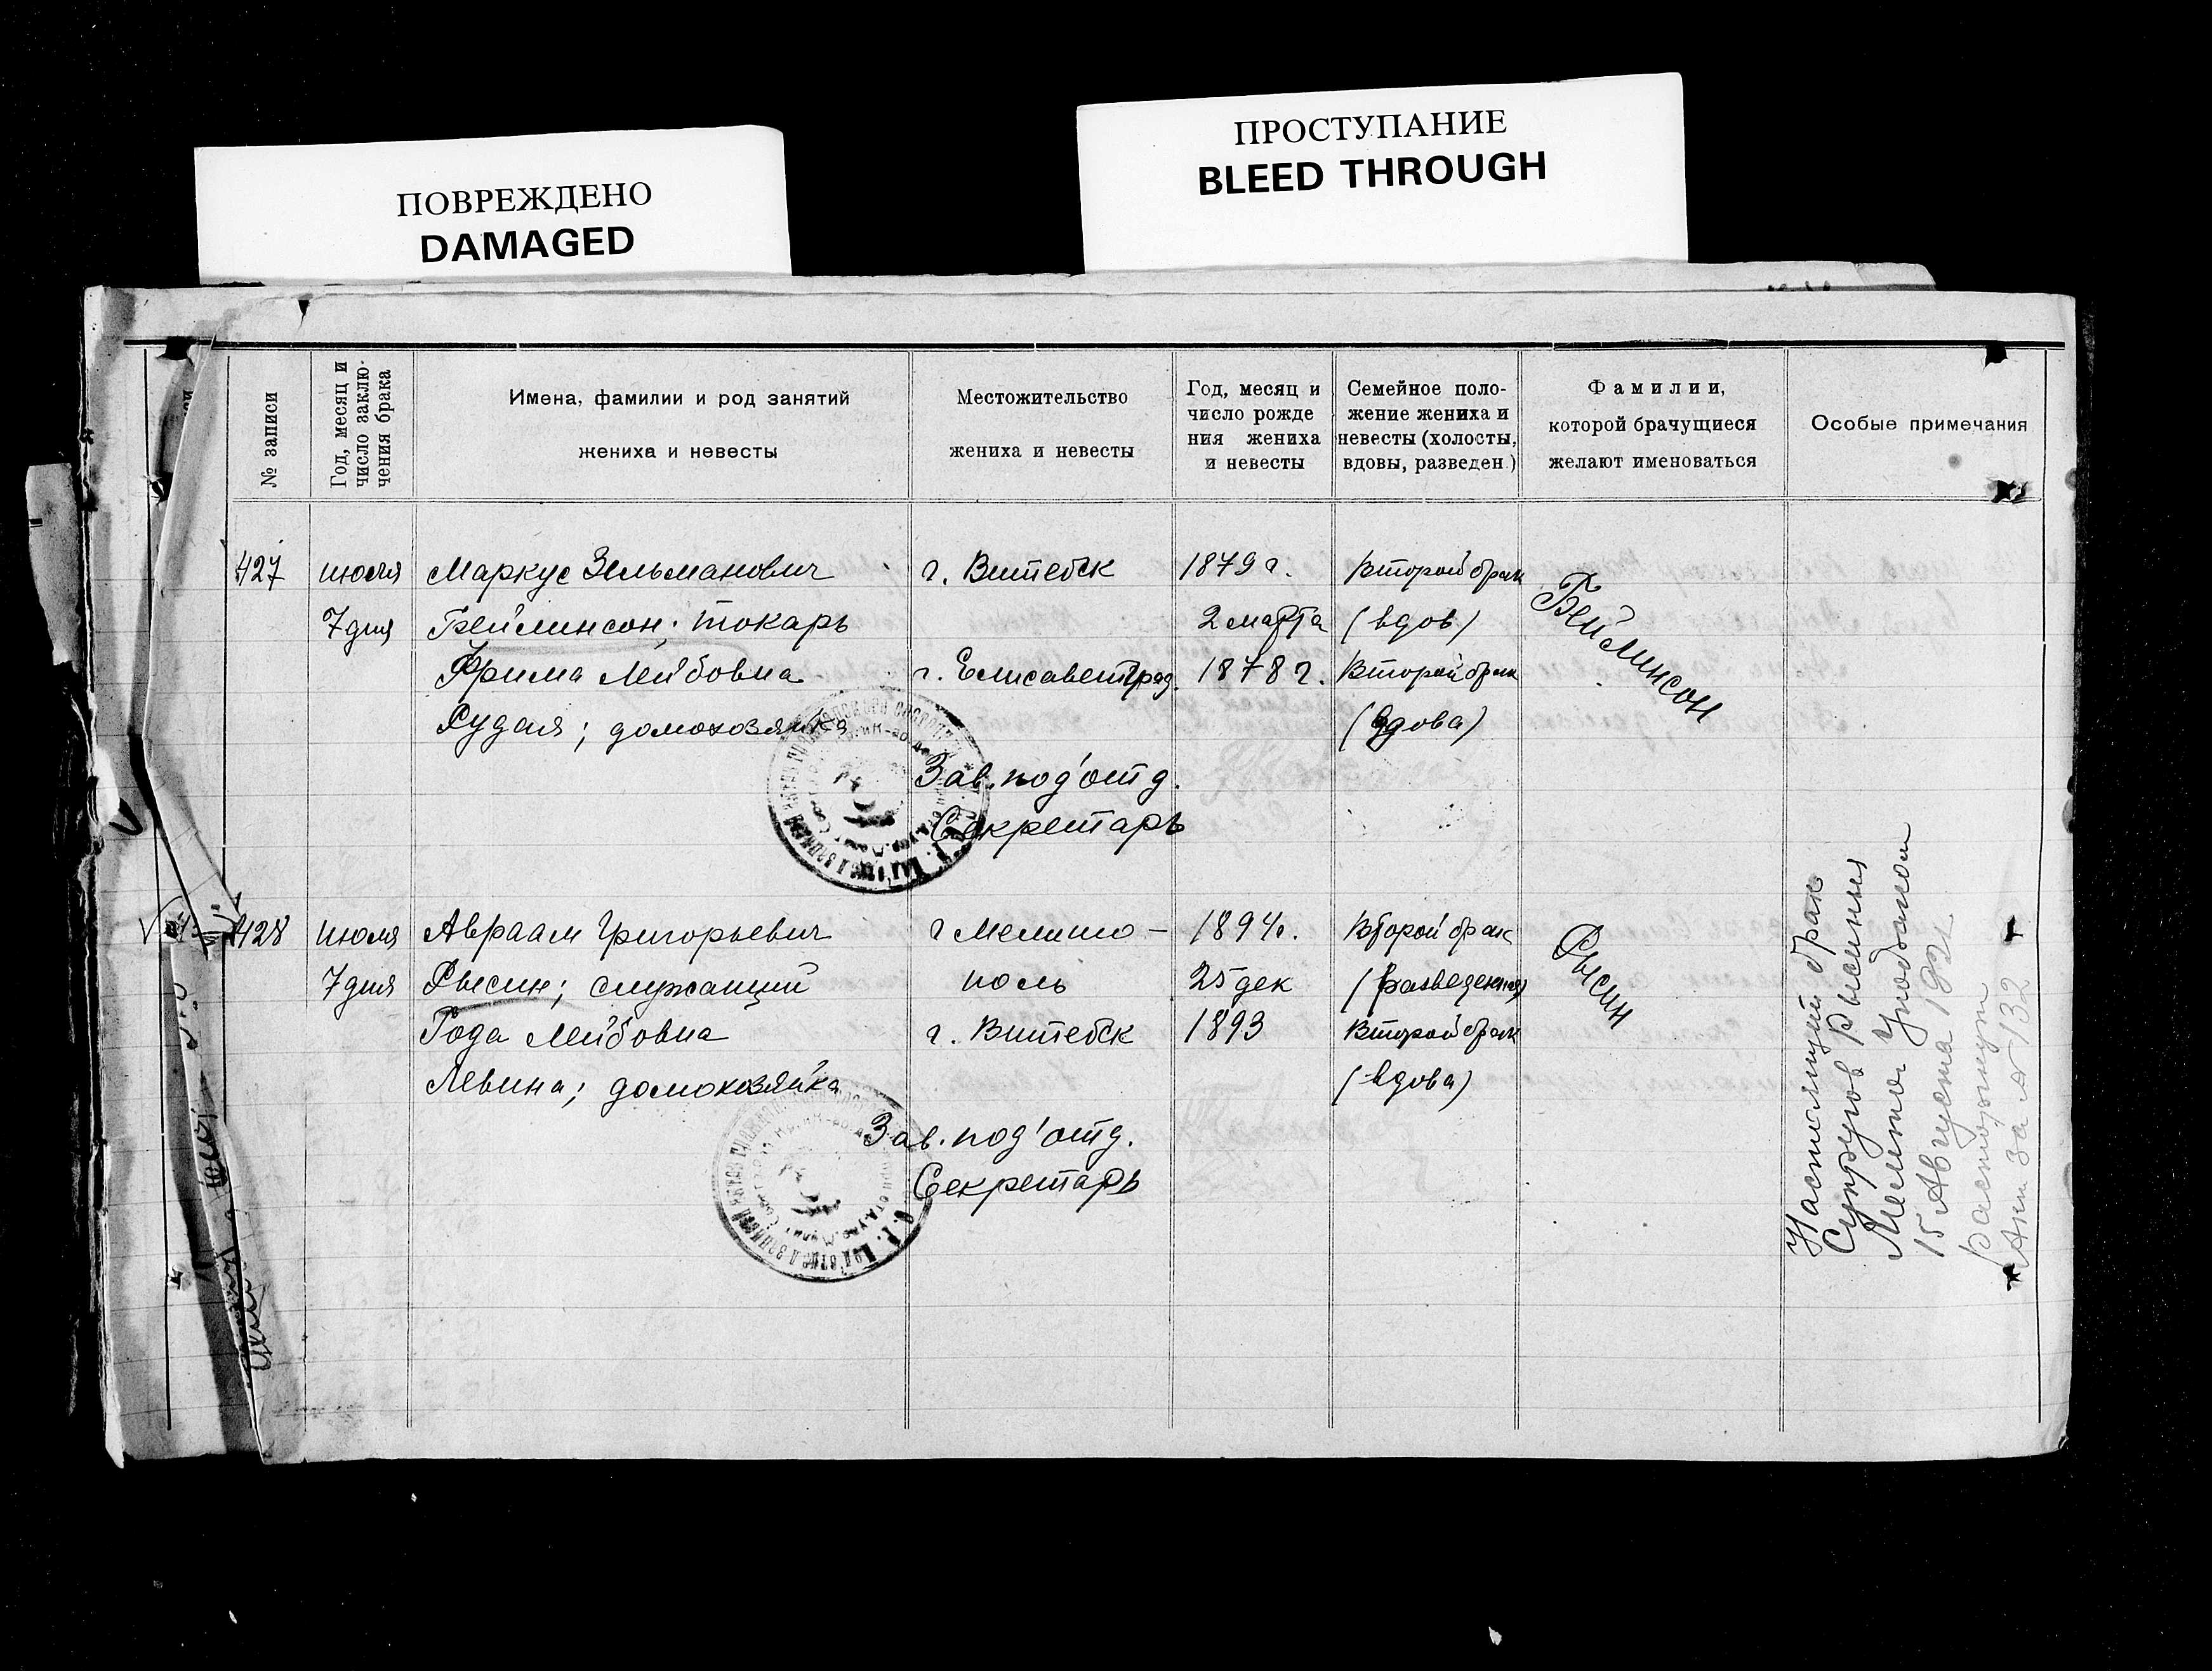 ПОВРЕЖДЕНО
DAMAGED
ПРОСТУПАНИЕ
BLEED THROUGH
№ записи
Год, месяц и
число заклю-
чения брака
Имена, фамилии и род занятий
жениха и невесты
Местожительство
жениха и невесты
Год, месяц и
число рожде
ния жениха
и невесты
Семейное поло-
жение жениха и
невесты (холосты,
вдовы, разведен.)
Фамилии,
которой брачущиеся
желают именоваться
Особые примечания
427 июля Маркус Зельманович г. Витебск 1879 г. Второй брак
7 дня Бейлинсон; токарь 2 марта (вдов)
Бейлинсон
Фрима Лейбовна г. Елисаветград. 1878 г. Второй брак
Рудая; домохозяйка (вдова)
Зав. под'отд.
Секретарь
428 июля Авраам Григорьевич г Мелито- 1894 г. Второй брак
7 дня Рысин; служащий поль 25 дек (разведенный)
Рысин
Года Лейбовна г. Витебск 1893 Второй брак
Левина; домохозяйка (вдова)
Зав. под'отд.
Секретарь
Настоящий брак
Супругов Рысиных
15 Августа 192
расторгнут
Акт за № 132